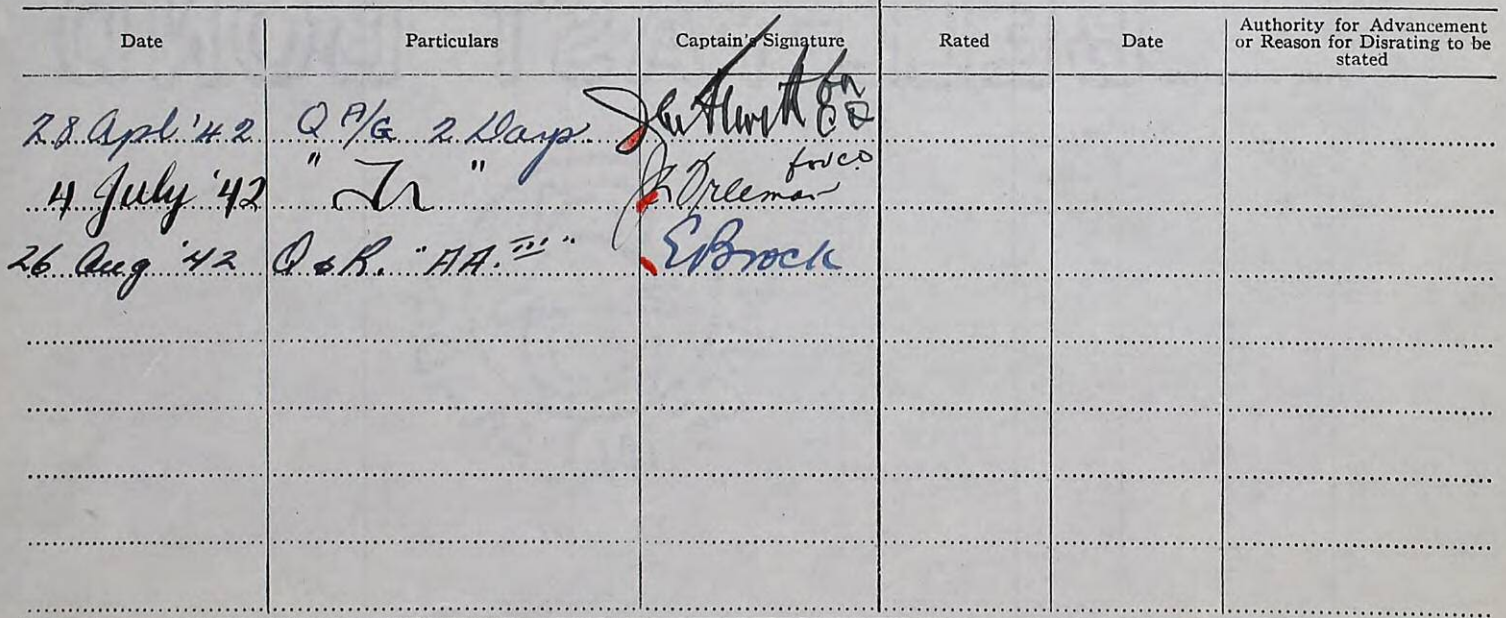 Date Particulars Captain's Signature Rated Date Authority for Advancement or Reason for Disrating to be stated
28 Apl. '42 Q A/G 2 Days
4 July '42 " " Freeman for CO
26 Aug '42 Q & R. "AA. III" EBrock